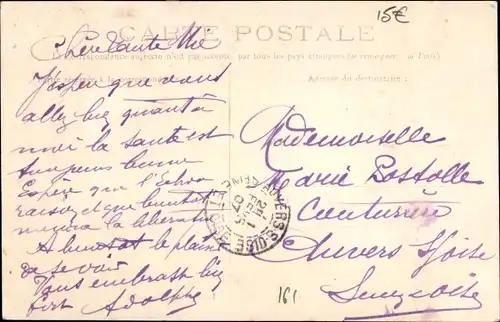 15€
CARTE POSTALE
Chère tante Mie
La correspondance au recto n'est pas acceptée par tous les pays étrangers (se renseigner à la Poste)
J'espère que vous
Adresse du destinataire:
allez bien quant à
moi la santé est
toujours bonne
Espère que
raison et que bientôt
la libération
A bientôt le plaisir
de se voir
Vous embrasse bien
fort Adolphe
Mademoiselle
Marie
Couturière
Auvers s/Oise
Seine et Oise
AUVERS-S-OISE
SEINE-ET-OISE
161